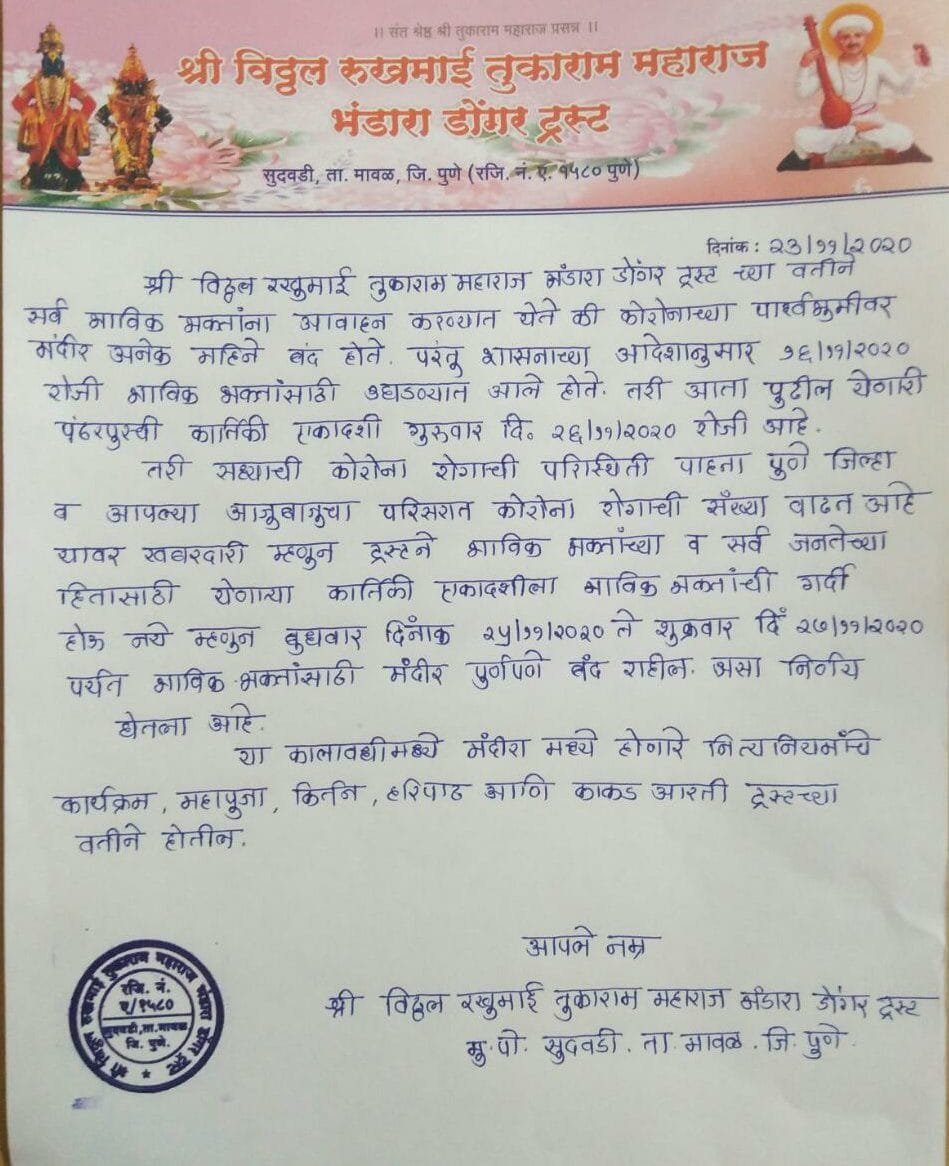 ।। संत श्रेष्ठ श्री तुकाराम महाराज प्रसन्न ।।
श्री विठ्ठल रुखमाई तुकाराम महाराज
भंडारा डोंगर ट्रस्ट
सुदवडी, ता. मावळ, जि. पुणे (रजि. नं. ए. १५८० पुणे)
दिनांक : २३/११/२०२०
श्री विठ्ठल रखुमाई तुकाराम महाराज भंडारा डोंगर ट्रस्ट च्या वतीने
सर्व भाविक भक्तांना आवाहन करण्यात येते की कोरोनाच्या पार्श्वभुमीवर
मंदीर अनेक महिने बंद होते. परंतू शासनाच्या आदेशानुसार १६/११/२०२०
रोजी भाविक भक्तांसाठी उघडण्यात आले होते. तरी आता पुढील येणारी
पंढरपुरची कार्तिकी एकादशी गुरुवार दि. २६/११/२०२० रोजी आहे.
तरी सध्याची कोरोना रोगाची परिस्थिती पाहता पुणे जिल्हा
व आपल्या आजुबाजुचा परिसरात कोरोना रोगाची संख्या वाढत आहे
यावर खबरदारी म्हणून ट्रस्टने भाविक भक्तांच्या व सर्व जनतेच्या
हितासाठी येणाऱ्या कार्तिकी एकादशीला भाविक भक्तांची गर्दी
होऊ नये म्हणून बुधवार दिंनाक २५/११/२०२० ते शुक्रवार दिं २७/११/२०२०
पर्यंत भाविक भक्तांसाठी मंदीर पुर्णपणे बंद राहील. असा निर्णय
घेतला आहे.
या कालावधीमध्ये मंदीरा मध्ये होणारे नित्य नियमांचे
कार्यक्रम, महापुजा, किर्तन, हरिपाठ आणि काकड आरती ट्रस्टच्या
वतीने होतील.
आपले नम्र
श्री विठ्ठल रखुमाई तुकाराम महाराज भंडारा डोंगर ट्रस्ट
मु. पो. सुदवडी. ता. मावळ. जि. पुणे.
श्री विठ्ठल रुखमाई तुकाराम महाराज भंडारा डोंगर ट्रस्ट
रजि. नं.
ए/१५८०
सुदवडी,ता.मावळ
जि. पुणे.